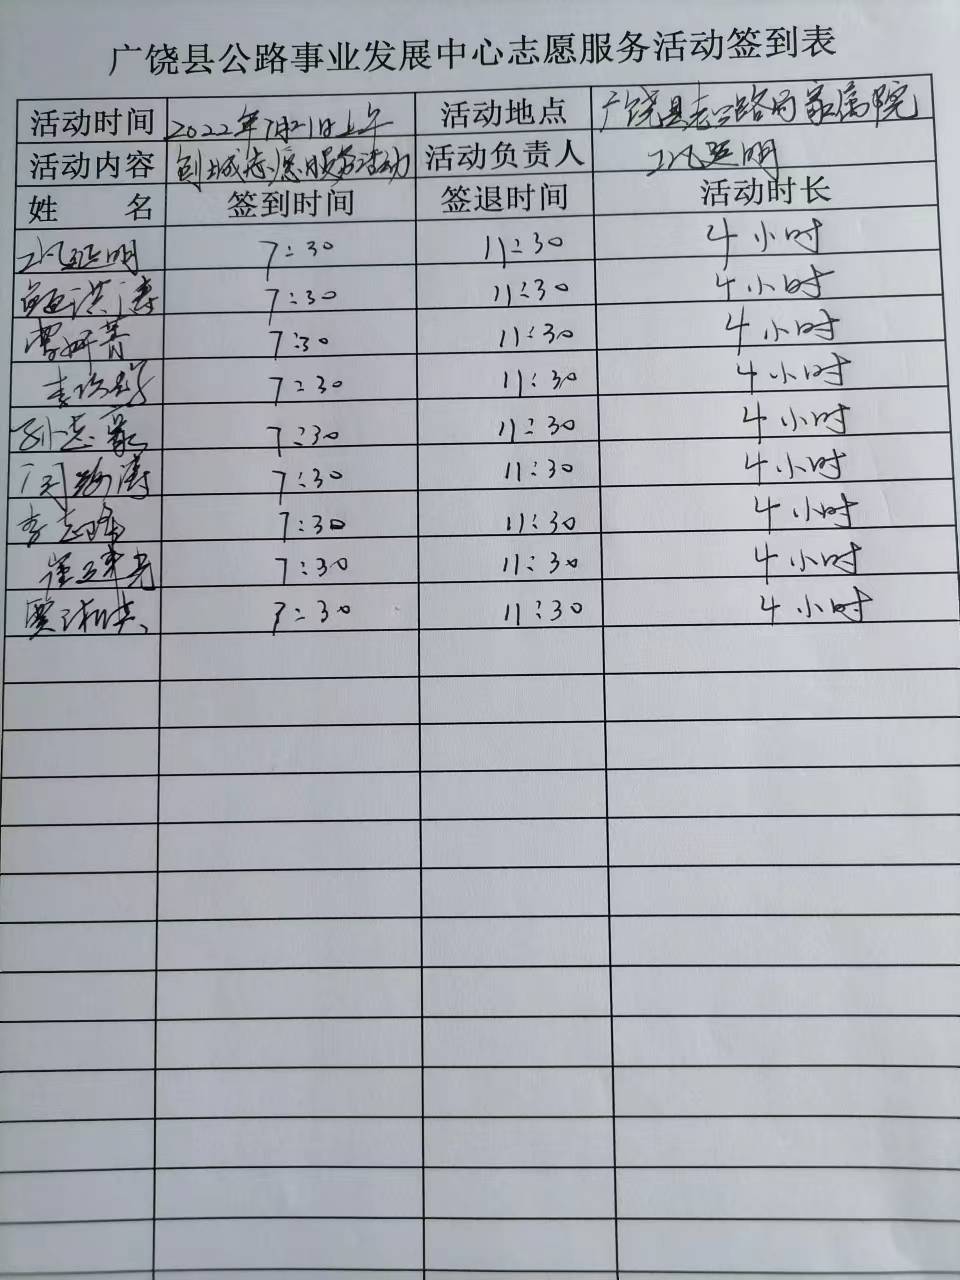 广饶县公路事业发展中心志愿服务活动签到表
活动时间 2022年7月21日上午 活动地点 广饶县老公路局家属院
活动内容 创城志愿服务活动 活动负责人 明
姓 名 签到时间 签退时间 活动时长
明 7:30 11:30 4小时
7:30 11:30 4小时
7:30 11:30 4小时
7:30 11:30 4小时
孙志 7:30 11:30 4小时
周 涛 7:30 11:30 4小时
李志 7:30 11:30 4小时
崔 7:30 11:30 4小时
贾 7:30 11:30 4小时